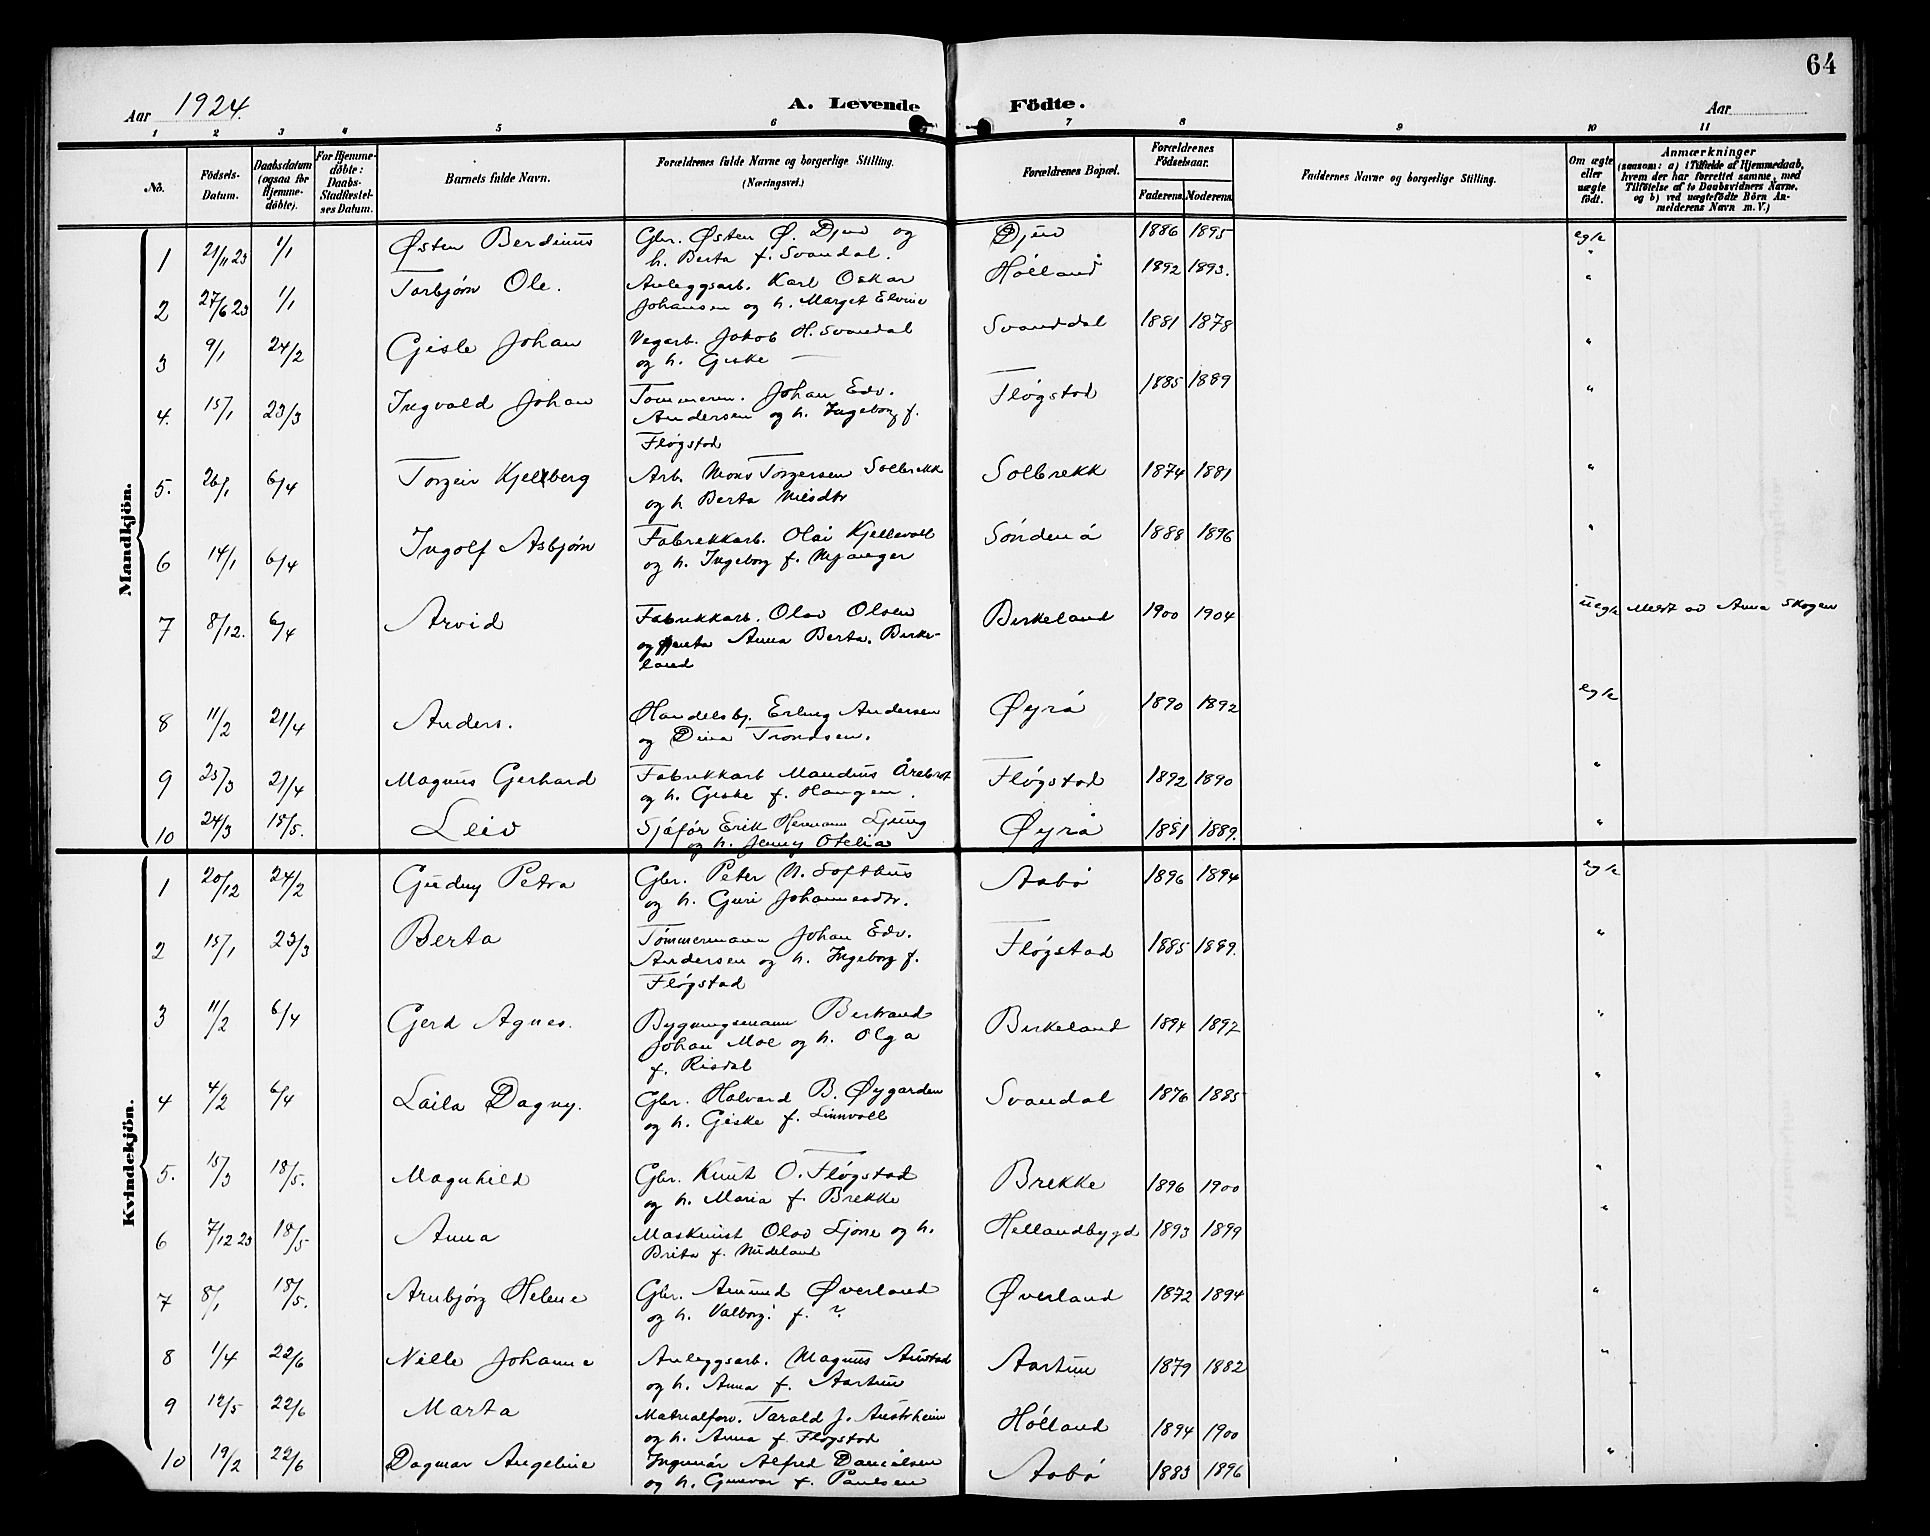 64
Aar 1924.
A. Levende Födte.
Aar
1 2 3 4 5 6 7 8 9 10 11
No.
Födsels-Datum.
Daabsdatum (ogsaa for Hjemme-döbte).
For Hjemme-döbte: Daabs-Stadfæstel-ses Datum.
Barnets fulde Navn.
Forældrenes fulde Navne og borgerlige Stilling.
(Næringsvei.)
Forældrenes Bopæl.
Forældrenes Födselsaar.
Faderens. Moderens.
Faddernes Navne og borgerlige Stilling.
Om ægte eller uægte födt.
Anmærkninger
(saasom: a) i Tilfælde af Hjemmedaab, hvem der har forrettet samme, med Tilföielse af to Daabsvidners Navne, og b) ved uægtefödte Börn Anmelderens Navn m. V.)
Mandkjön.
1 21/11 23 1/1 Østen Berdinus Gbr. Østen Ø. Djuv og Djuv 1886 1895 egte
h. Berta f. Svandal.
2 27/6 23 1/1 Torbjørn Ole. Anleggsarb. Karl Oskar Hølland 1892 1893. "
Johansen og h. Marget Elvine
3 9/1 24/2 Gisle Johan Vegarb. Jakob H. Svandal Svanddal 1881 1878 "
og h. Giske —
4. 15/1 23/3 Ingvald Johan Tømmerm. Johan Edv. Fløgstad 1885 1889 "
Andersen og h. Ingeborg f.
Fløgstad
5. 26/1 6/4 Torgeir Kjellberg Arb. Mons Torgersen Solbrekk Solbrekk 1874 1881 "
og h Berta Nilsdtr
6 14/1 6/4 Ingolf Asbjørn Fabrikkarb. Olai Kjellevoll Søndenå 1888 1896 "
og h. Ingeborg f. Mjanger
7 8/12. 6/4 Arvid Fabrikkarb. Olav Olsen Birkeland 1900 1904 uegte Meldt av Anna Skogen
og jenta Anna Berta. Birke-
land
8 11/2 21/4 Anders. Handelsbj. Erling Andersen Øyrå 1890 1892 egte
og Dina Trondsen.
9 25/3 21/4 Magnus Gerhard Fabrikkarb Mandius Årebrot Fløgstad 1892 1890 "
og h. Giske f. Haugen.
10 24/3 18/5. Leiv Sjåfør Erik Hermann Ljung Øyrå 1881 1889. "
og h. Jenny Otelia
Kvindekjön.
1 20/12 24/2 Gudny Petra Gbr. Peter N. Softhus Aabø 1896 1894 egte
og h. Guri Johannesdtr.
2 15/1 23/3 Berta Tømmermann Johan Edv. Fløgstad 1885 1889. "
Andersen og h. Ingeborg f.
Fløgstad
3 11/2 6/4 Gerd Agnes. Bygningsmann Bertrand Birkeland 1894 1897 "
Johan Moe og h. Olga
f. Risdal
4 4/2 6/4 Laila Dagny. Gbr. Halvard B. Øygarden Svandal 1876 1885 "
og h. Giske f. Linnvoll
5. 15/3 18/5. Magnhild Gbr. Knut O. Fløgstad Brekke 1896 1900 "
og h. Maria f. Brekke
6 7/12 23 18/5 Anna Maskinist Olav Ljone og h. Hellandbygd 1893 1899 "
Brita f. Mideland
7 8/1 18/5. Arnbjørg Helene Gbr. Amund Øverland Øverland 1872 1894 "
og h. Valborg f. ?
8 1/4 22/6 Nille Johanne Anleggsarb. Magnus Austad Aartun 1879 1882 "
og h. Anna f. Aartun
9 12/5 22/6 Marta Matrialforv. Tarald J. Austrheim Hølland 1894 1900
og h. Anna f. Fløgstad
10 19/2 22/6 Dagmar Angeline Ingeniør Alfred Danielsen Aabø 1883 1896 "
og h. Gunvor f. Paulsen